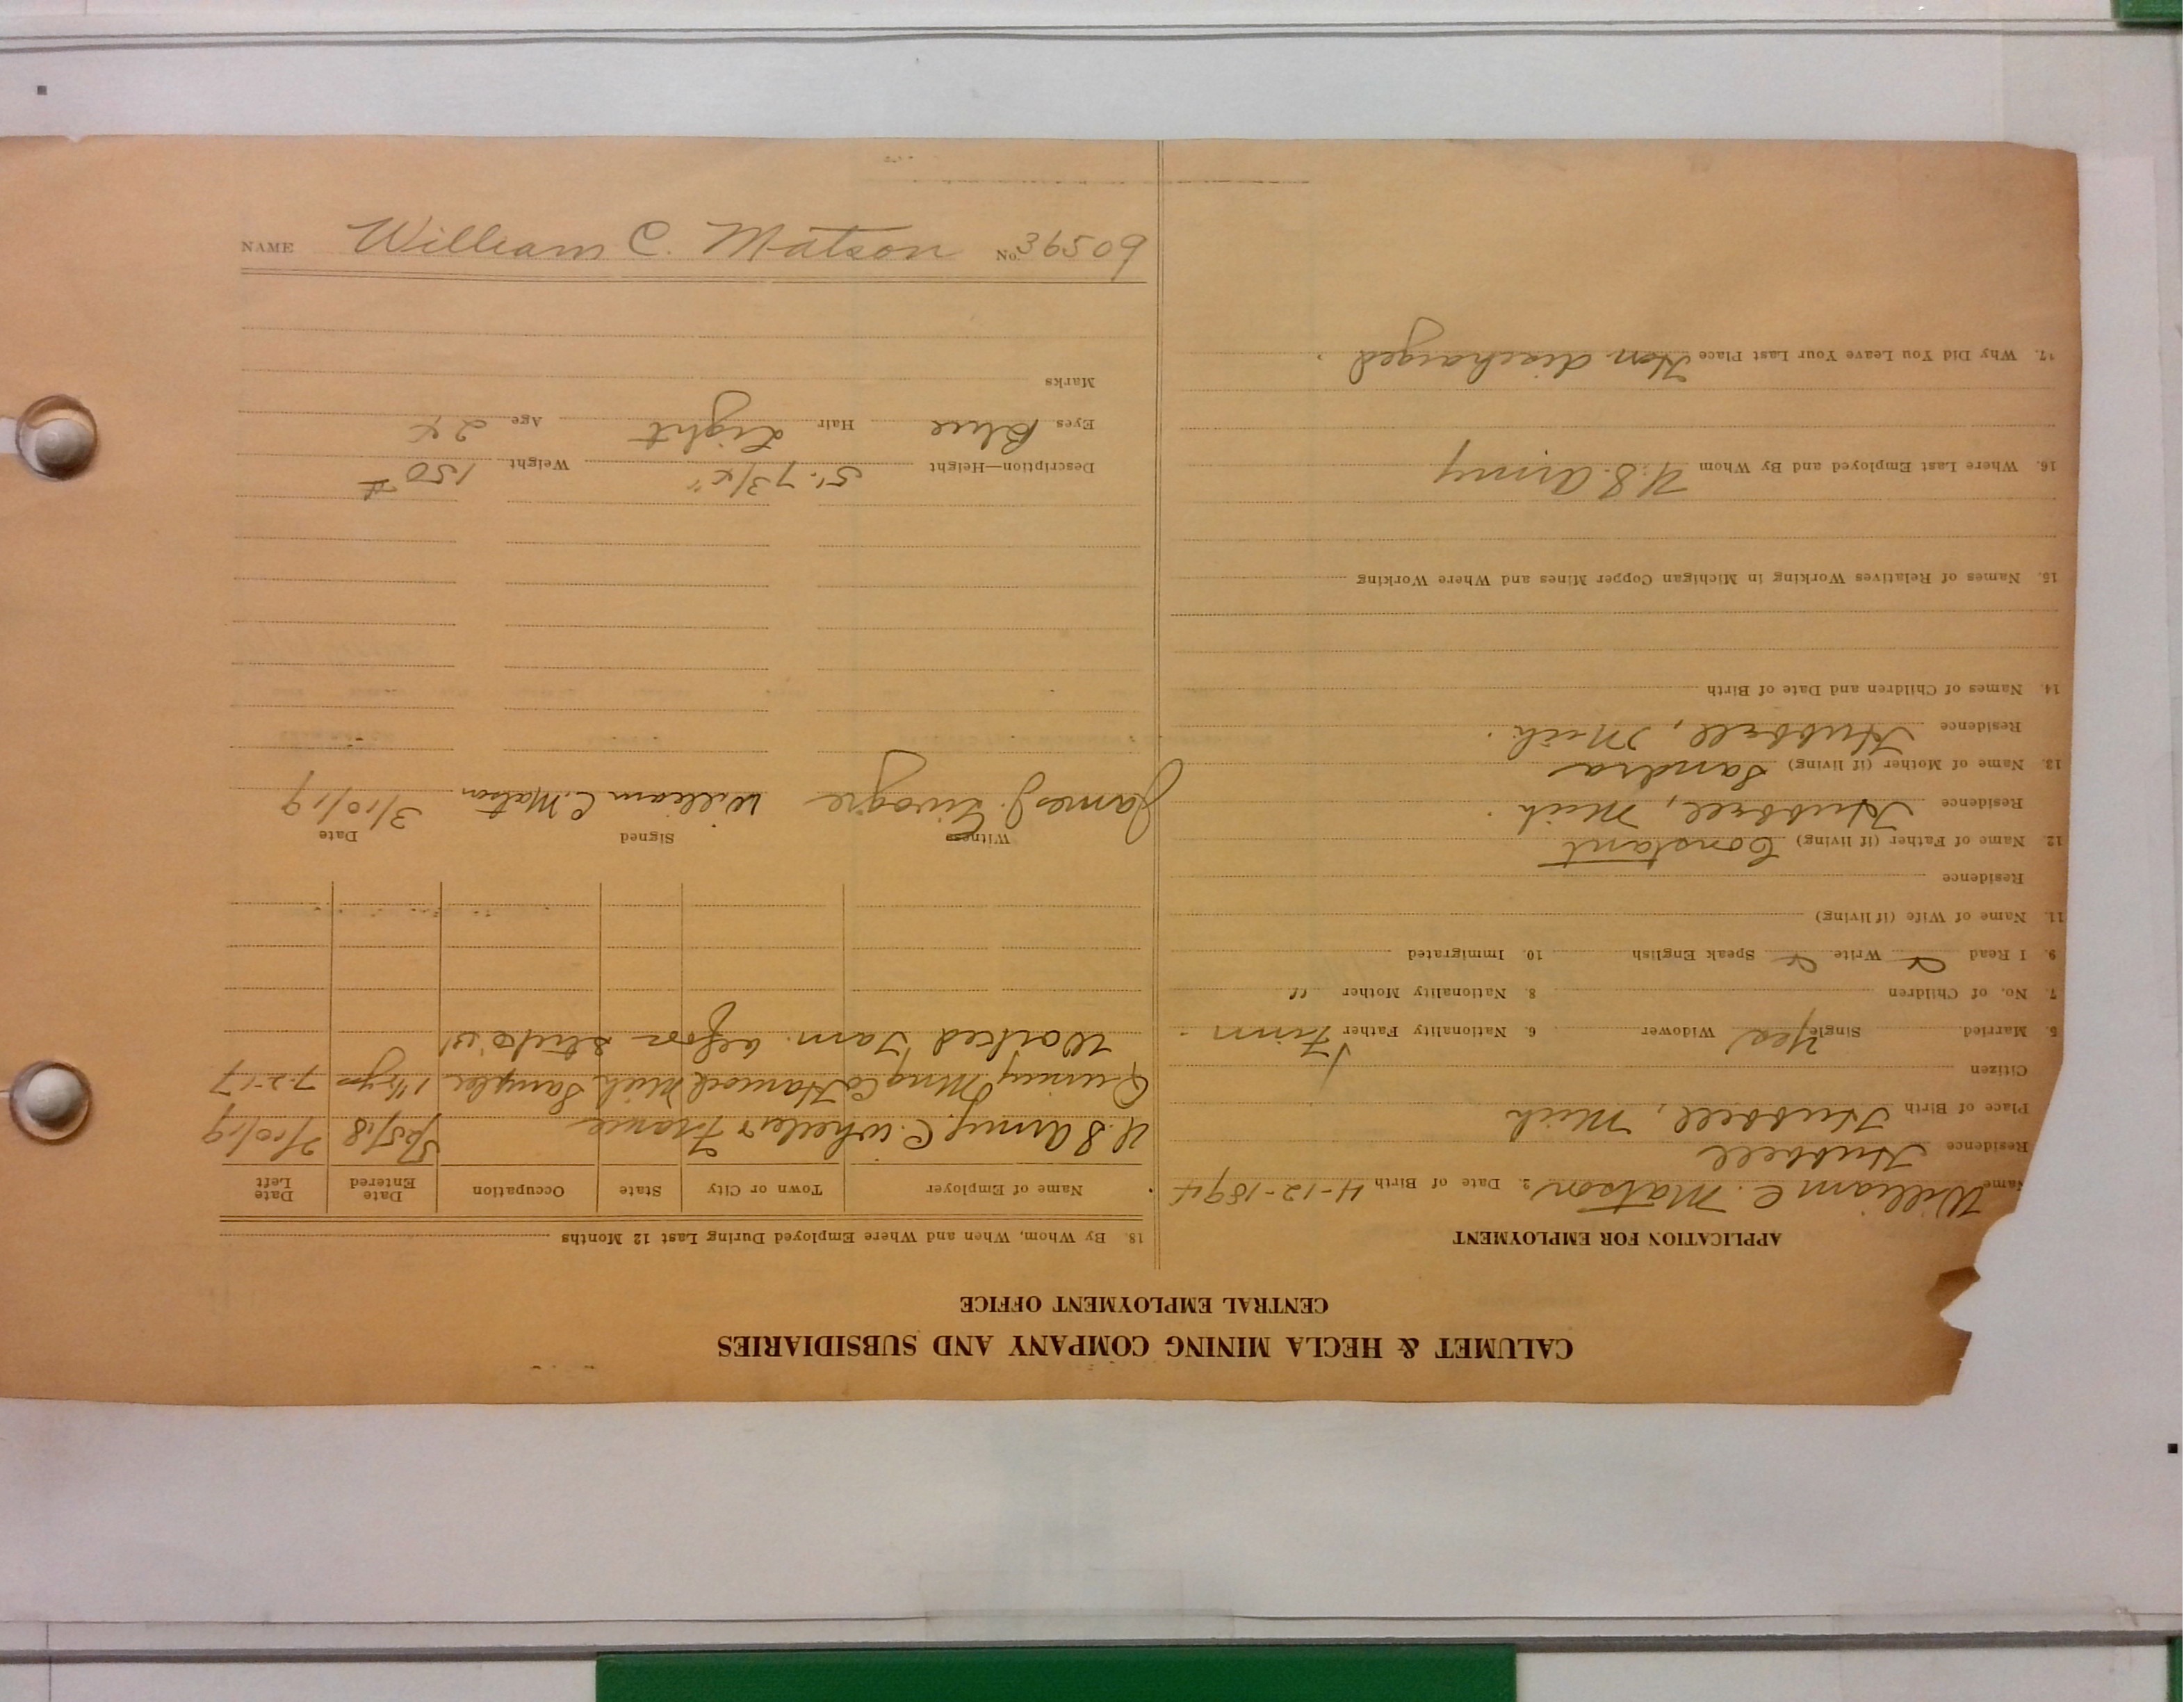 CALUMET & HECLA MINING COMPANY AND SUBSIDIARIES
CENTRAL EMPLOYMENT OFFICE
APPLICATION FOR EMPLOYMENT
Name William C. Matson 2. Date of Birth 4-12-1894
Residence Hubbell
Place of Birth Hubbell, Mich
Citizen
5. Married Single Yes Widower 6. Nationality Father Finn
7. No. of Children 8. Nationality Mother "
9. I Read Write Speak English 10. Immigrated
11. Name of Wife (if living)
Residence
12. Name of Father (if living) Constant
Residence Hubbell, Mich.
13. Name of Mother (if living) Sandra
Residence Hubbell, Mich.
14. Names of Children and Date of Birth
15. Names of Relatives Working in Michigan Copper Mines and Where Working
16. Where Last Employed and By Whom U.S. Army
17. Why Did You Leave Your Last Place Hon discharged.
18. By Whom, When and Where Employed During Last 12 Months
Name of Employer Town or City State Occupation Date Entered Date Left
U.S Army C. Wheeler France 5/25/18
Quincy Mng Co Hancock Mich Sampler 1 1/2 yrs 7-2-17
Worked Tam. before
Witness Signed Date
James J. William C. Matson 3/10/19
Description—Height 5'. 7 3/4" Weight 150 #
Eyes Blue Hair Light Age 24
Marks
NAME William C. Matson No. 36509